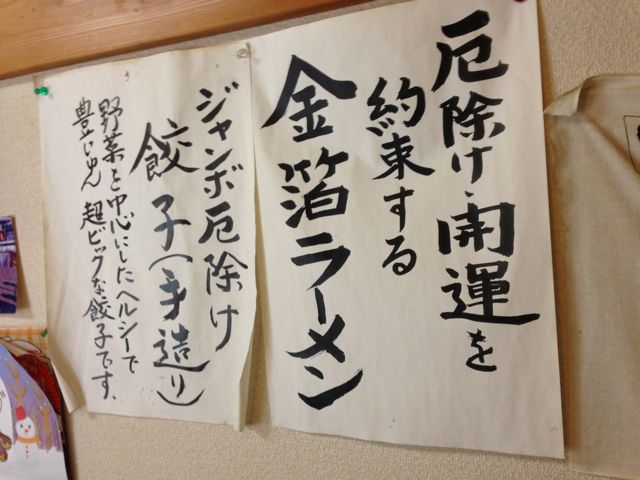 厄除け・開運を
約束する
金箔ラーメン
ジャンボ厄除け
餃子(手造り)
野菜を中心にしたヘルシーで
豊じゅん超ビックな餃子です、